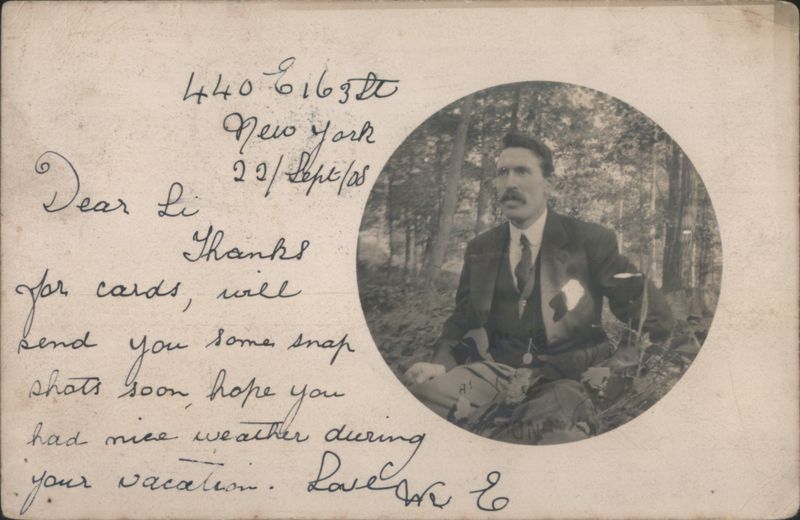 440 E 163 St
New York
22/Sept/08
Dear Li
Thanks
for cards, will
send you some snap
shots soon, hope you
had nice weather during
your vacation. Love
E